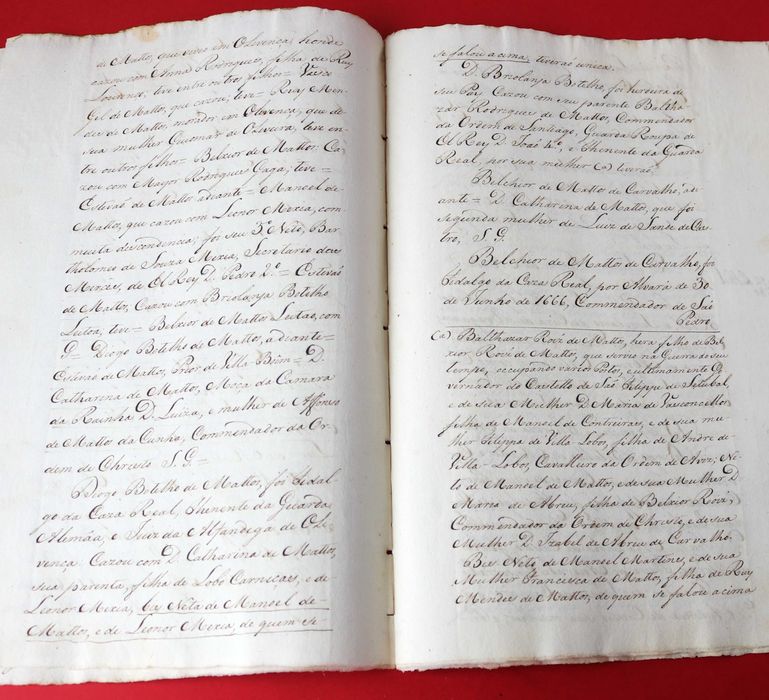 de Mattos, que viveo em Olivença, honde
cazou com Anna Rodrigues, filha de Ruy
Lourenço, teve entre outros filhos = Vasco
Gil de Mattos, que cazou, teve = Ruy Men-
des de Mattos, morador em Olivença, que de
sua mulher Guiomar de Oliveira, teve en-
tre outros filhos = Belxior de Mattos. Ca-
zou com Mayor Rodrigues Gago; teve =
Estevaõ de Mattos adeante = Manoel de
Mattos, que cazou com Leonor Mexia, com
muita descendencia; foi seu 3º Neto, Bar-
tholomeo de Souza Mexia, Secretario das
Mercês, de El Rey D. Pedro 2º = Estevaõ
de Mattos, Cazou com Briolanja Botelho
teve = Belxior de Mattos com
G = Diogo Botelho de Mattos, adiante =
Estevaõ de Mattos, Prior de Villa Boim = D.
Catharina de Mattos, Moça da Camara
da Rainha D. Luiza, e mulher de Affonso
de Mattos da Cunha, Commendador da Or-
dem de Christo S. G =
Diogo Botelho de Mattos, foi Fidal-
go da Caza Real, Thenente da Guarda
Alemãa, e Juiz da Alfandega de Oli-
vença. Cazou com D. Catharina de Mattos,
sua parenta, filha de Lobo Carniçaes, e de
Leonor Mexia, bis Neta de Manoel de
Mattos, e de Leonor Mexia, de quem se
se falou acima, tiveraõ unica.
D. Briolanja Botelho, foi herdeira de
seu Pay. Cazou com seu parente Baltha-
zar Rodrigues de Mattos, Commendador
da Ordem de Santiago, Guarda Roupa de
El Rey D. Joaõ 4º, e Thenente da Guarda
Real, por sua mulher (a) tiveraõ
Belchior de Mattos de Carvalho, adi-
ante = D. Catharina de Mattos, que foi
segunda mulher de Luiz de Sande de Cas-
tro, S. G.
Belchior de Mattos de Carvalho, foi
Fidalgo da Caza Real, por Alvará de 30
de Junho de 1666, Commendador de Saõ
Pedro
(a) Balthazar Roiz de Mattos, hera filho de Bel-
xior Roiz de Mattos, que servio na Guerra do seu
tempo, occupando varios Postos, e ultimamente Go-
vernador do Castello de Saõ Filippe de Setubal,
e de sua Mulher D. Maria de Vasconcellos
filha de Manoel de Contreiras, e de sua mu-
lher Filippa de Villa Lobos, filha de Andre de
Villa Lobos, Cavalleiro da Ordem de Aviz; Ne-
to de Manoel de Mattos, e de sua Mulher D.
Maria de Abreu, filha de Belxior Roiz,
Commendador da Ordem de Christo, e de sua
Mulher D. Izabel de Abreu de Carvalho.
Bis Neto de Manoel Martins, e de sua
Mulher Francisca de Mattos, filha de Ruy
Mendes de Mattos, de quem se falou acima